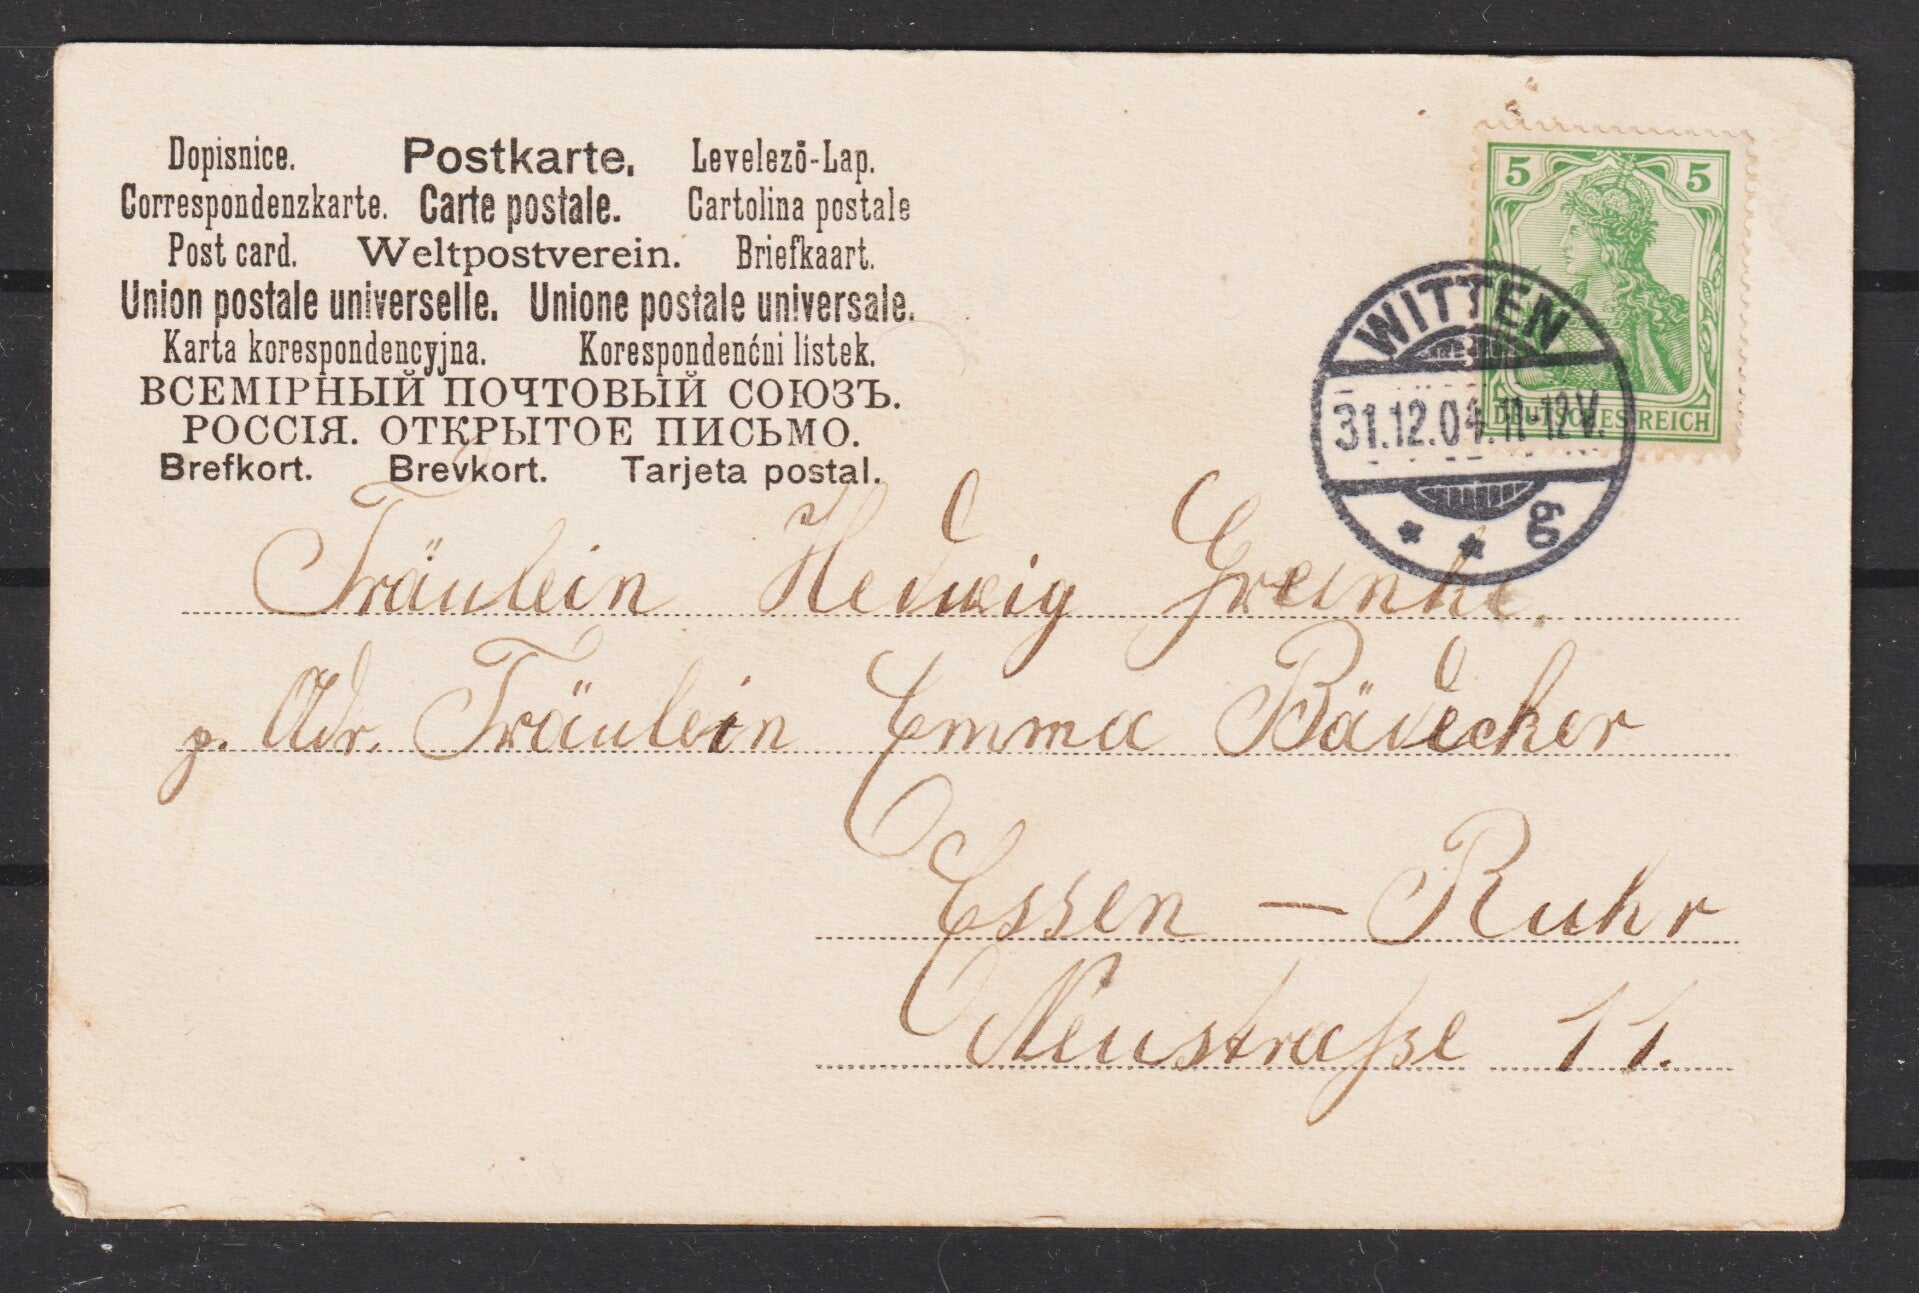 Dopisnice. Postkarte. Levelező-Lap.
Correspondenzkarte. Carte postale. Cartolina postale
Post card. Weltpostverein. Briefkaart.
Union postale universelle. Unione postale universale.
Karta korespondencyjna. Korespondenćni listek.
ВСЕМІРНЫЙ ПОЧТОВЫЙ СОЮЗЪ.
РОССІЯ. ОТКРЫТОЕ ПИСЬМО.
Brefkort. Brevkort. Tarjeta postal.
5 5
DEUTSCHES REICH
WITTEN
31.12.04. 11-12V.
* * g
Fräulein Hedwig Greinke.
p. Adr. Fräulein Emma Bädecker
Essen — Ruhr
Neustraße 11.